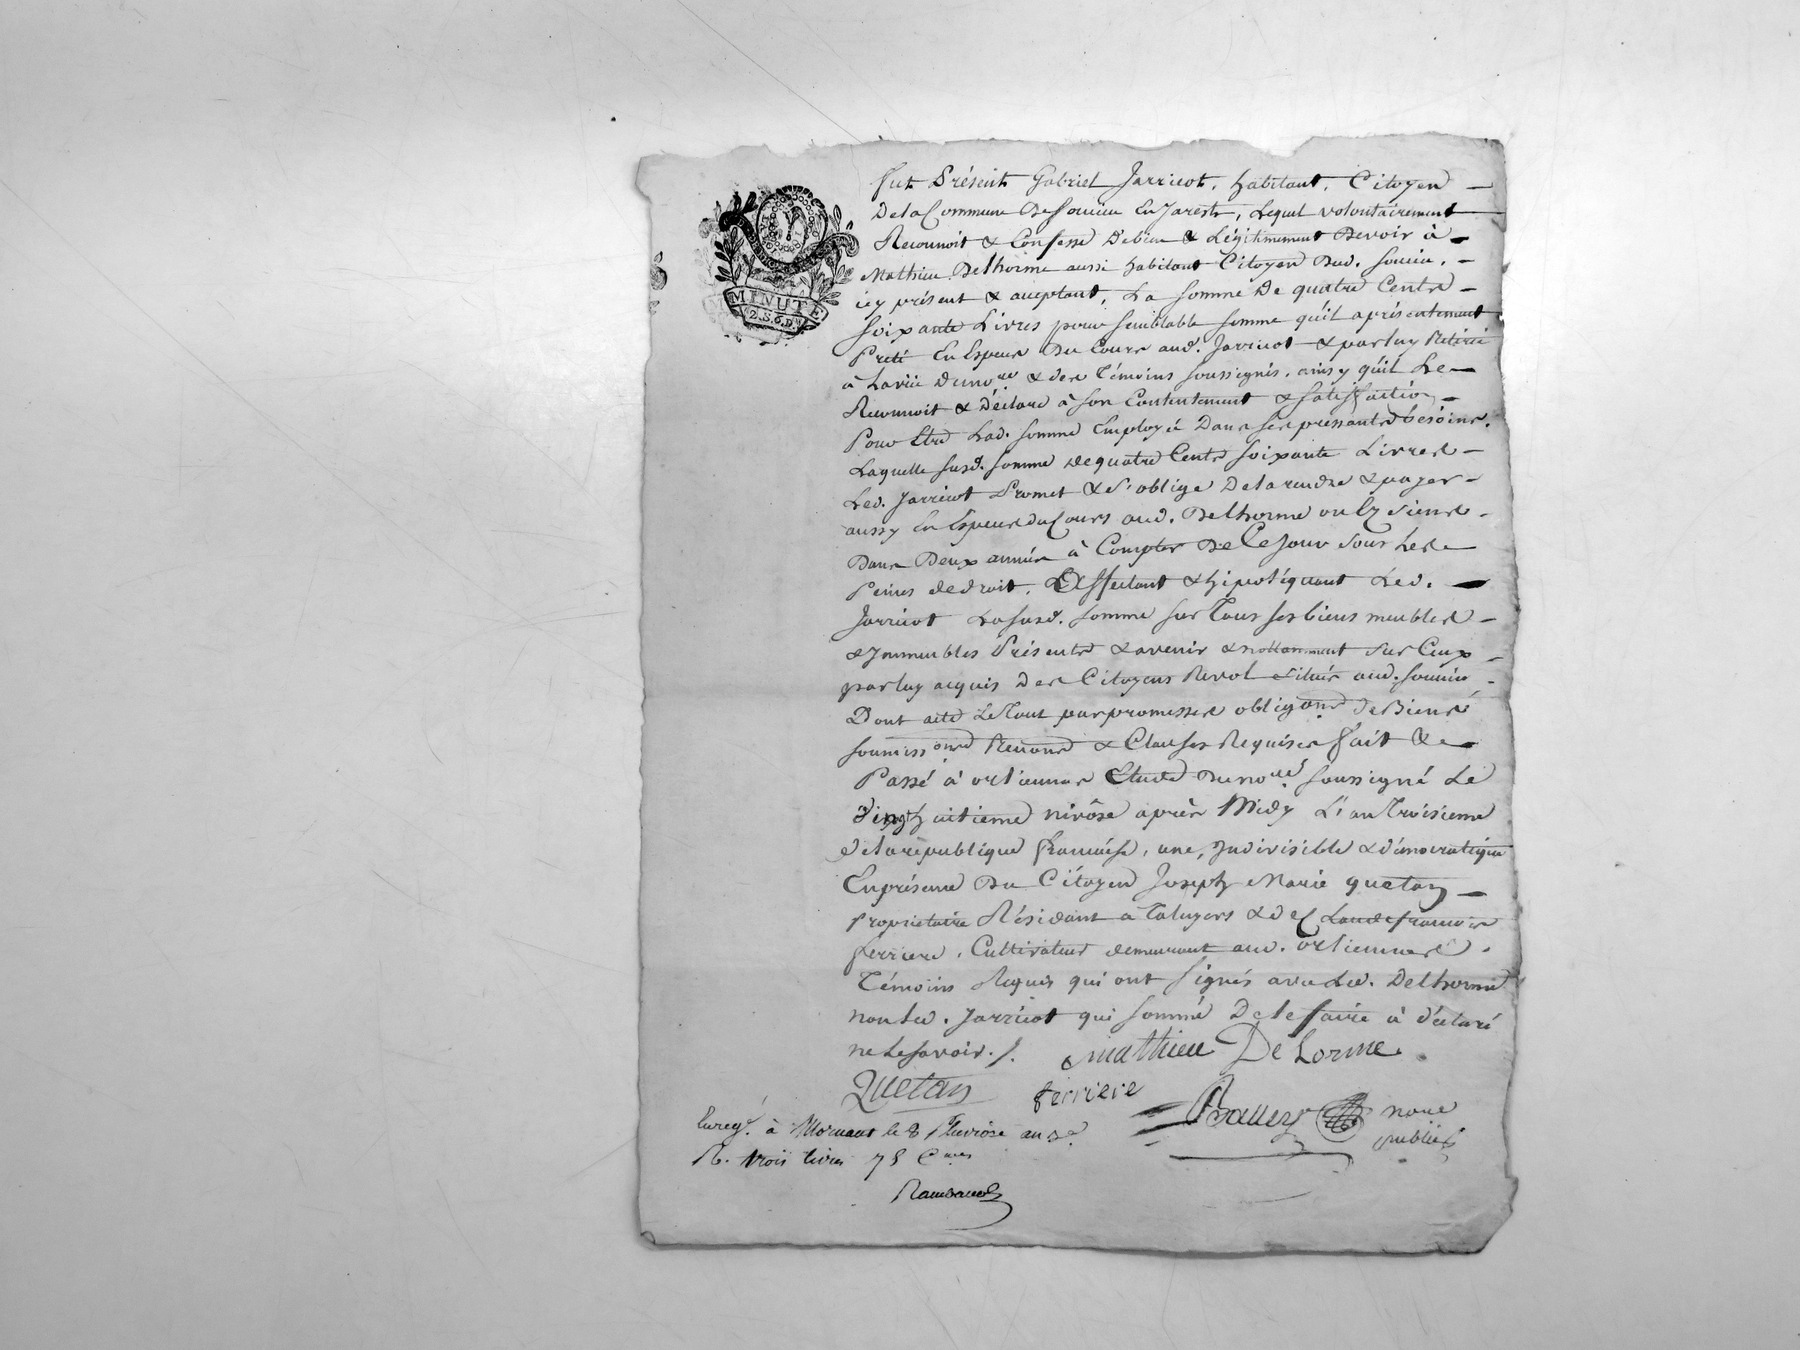 MINUTE
2.S.6.Drs
fut Présent Gabriel Jarricot, habitant, Citoyen
De la Commune De Soucieu En Jarest, Lequel volontairement
Reconnoit & Confesse D'ebien & Légitimement Devoir à
Mathieu Delhorme aussi habitant Citoyen Dud. Soucieu,
icy présent & acceptant, La somme De quatre Cents
Soixante Livres pour semblable somme qu'il a présentement
Preté En Espece Du Cours aud. Jarricot & par luy Retirée
à La vüe du no.re & des Témoins soussignés, ainsy qu'il Le
Reconnoit & Déclare à son Contentement & satisfaction
Pour Etre Lad. somme Employée Dans ses pressants bésoins.
Laquelle susd. somme de quatre Cents soixante Livres
Led. Jarricot Promet & s'oblige De la rendre & payer
aussy En Espece du Cours aud. Delhorme ou Ez siens
Dans Deux années à Compter De Ce Jour sous Les
Peines de droit, Affectant & hipotéquant Led.
Jarricot La susd. somme sur Tous ses biens meubles
& Jmmeubles Présents & avenir & nottamment sur Ceux
par luy acquis Des Citoyens Revol situés aud. Soucieu
Dont acte Le Tout par promesses obligons De Biens
soumissons Renons & Clauses Requises fait &
Passé à orlienas Etude du no.re soussigné Le
vingthuitieme nivôse après Midy L'an Troisieme
De la république francaise, une, Jndivisible & démocratique
En présence Du Citoyen Joseph Marie quetan
Propriétaire Résidant à Taluyers & de Claude francois
ferriere, Cultivateur demeurant aud. orlienas
Témoins Requis qui ont signés avec Led. Delhorme
non Led. Jarricot qui sommé De le faire à déclaré
ne Le savoir. /.
Mathieu De Lorme
Quetan
ferriere
nore
public
Enregé. à Mornant le 8 Pluviose an 3e
R. trois livres 75 C.mes
Rambaud